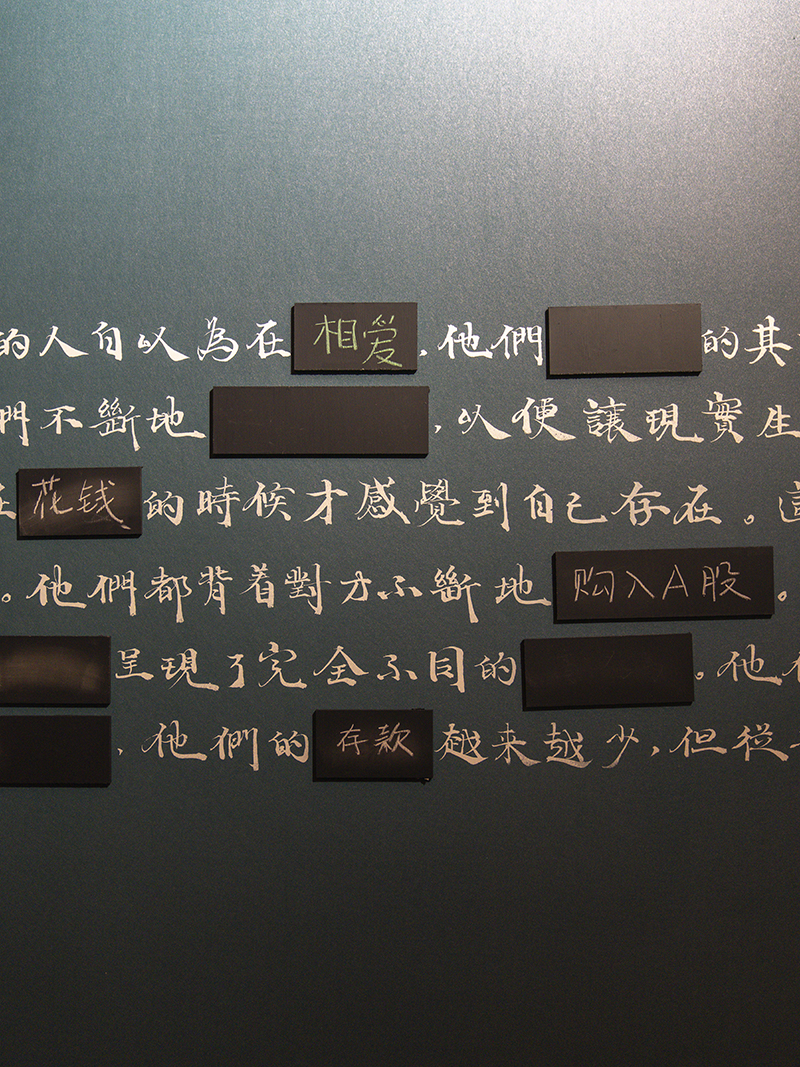 的人自以為在相爱,他們 的其
們不斷地 ,以便讓現實生
在花钱的時候才感覺到自己存在。這
。他們都背着對方不斷地购入A股。
呈現了完全不同的 。他
,他們的存款越来越少,但從